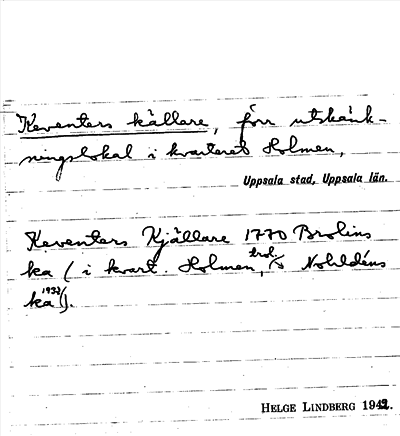 Keventers källare, förr utskänk-
ningslokal i kvarteret Holmen,
Uppsala stad, Uppsala län.
Keventers Kjällare 1770 Brolins
ka (i kvart. Holmen, trol. Nohldéns
ka 1937).
HELGE LINDBERG 1942.